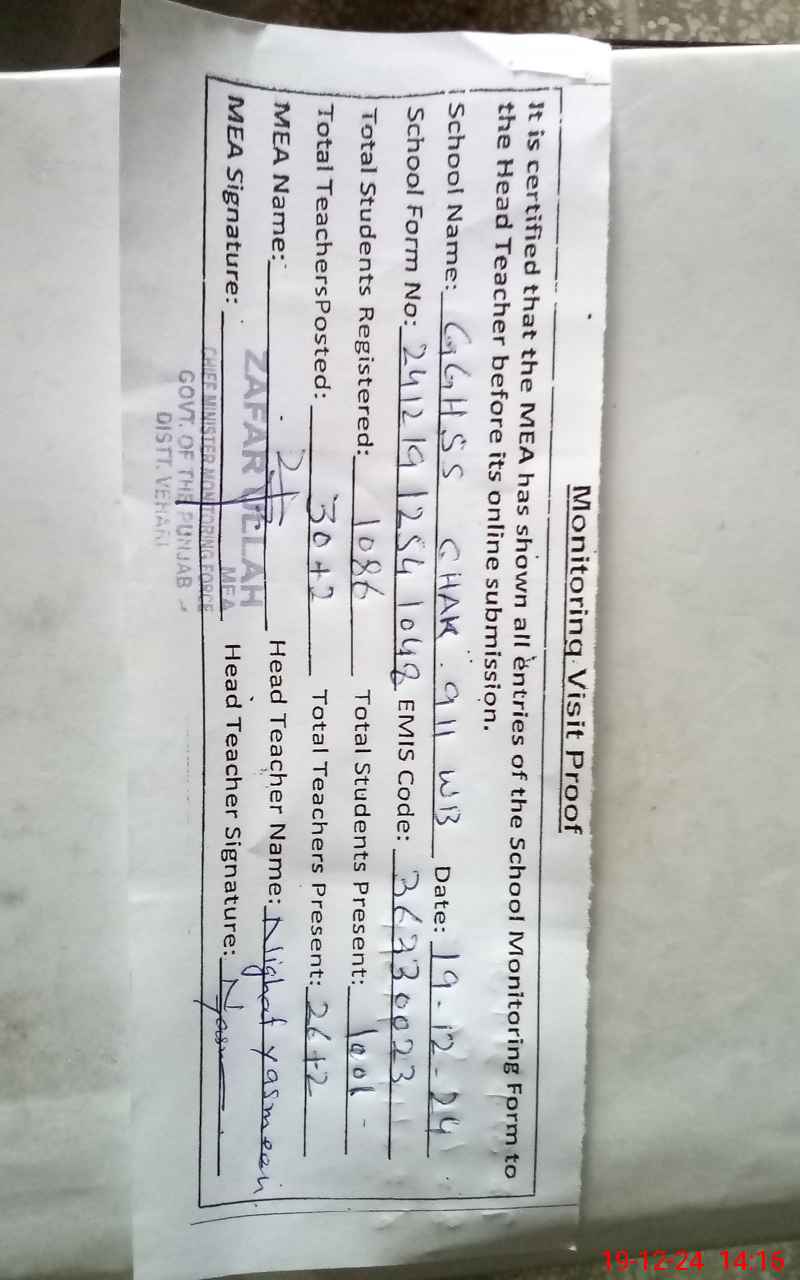 Monitoring Visit Proof
It is certified that the MEA has shown all entries of the School Monitoring Form to
the Head Teacher before its online submission.
School Name: GGHSS CHAK. 911 WB Date: 19-12-24
School Form No: 241219 1254 1048 EMIS Code: 36330023
Total Students Registered: 1086 Total Students Present: 1001 -
Total TeachersPosted: 30+2 Total Teachers Present: 26+2
MEA Name: Head Teacher Name: Nighat Yasmeen
ZAFAR ULLAH
MEA Signature: MEA Head Teacher Signature:
CHIEF MINISTER MONITORING FORCE
GOVT. OF THE PUNJAB
DISTT. VEHARI
19-12-24 14:16